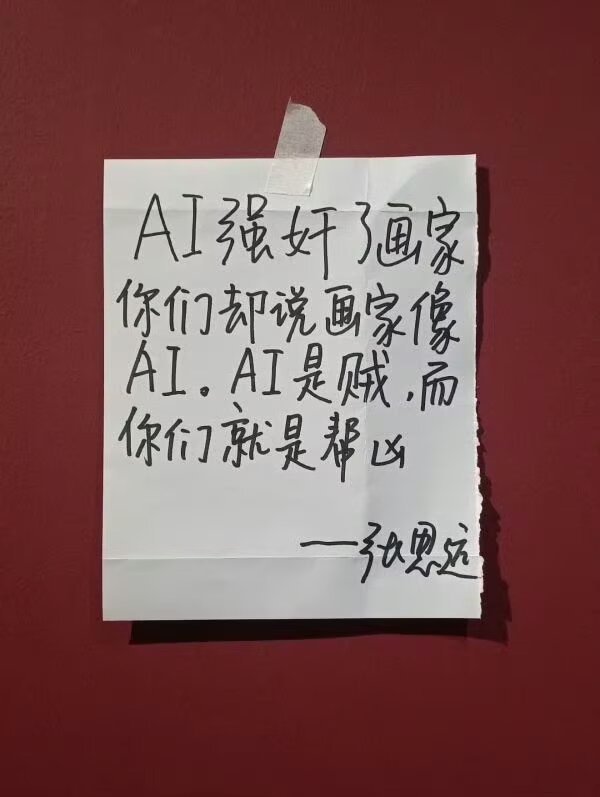 AI强奸了画家
你们却说画家像
AI。AI是贼,而
你们就是帮凶
——张思远